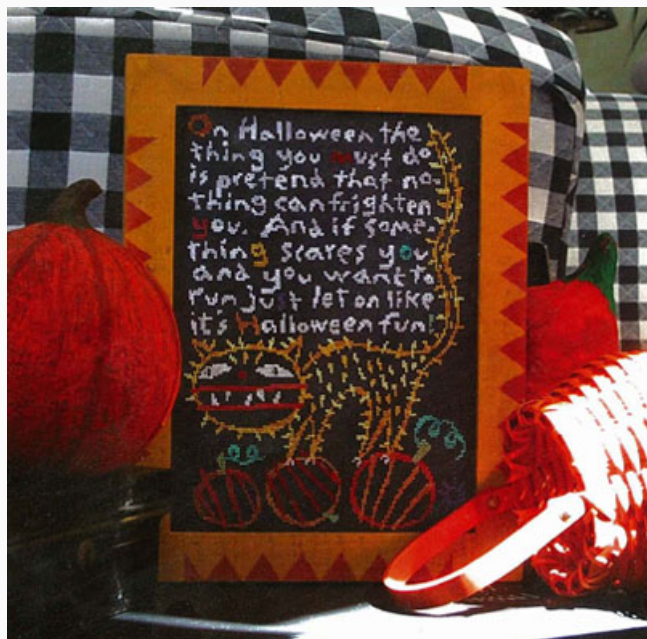 On Halloween the
thing you must do
is pretend that no-
thing can frighten
you. And if some-
thing scares you
and you want to
run just let on like
it's Halloween fun!